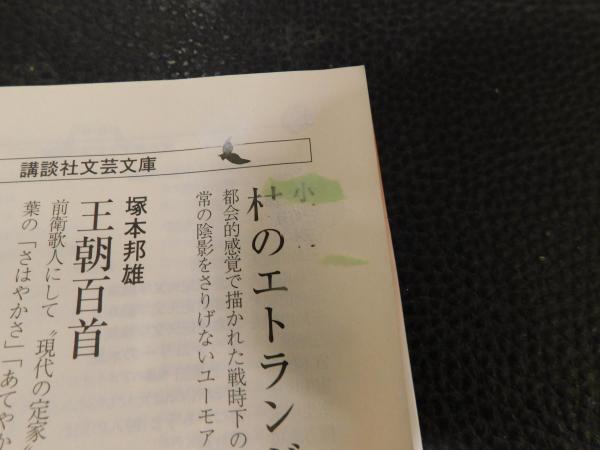 講談社文芸文庫
小
杜のエトランジ
都会的感覚で描かれた戦時下の
常の陰影をさりげないユーモア
塚本邦雄
王朝百首
前衛歌人にして〝現代の定家〟
葉の「さはやかさ」「あてやか